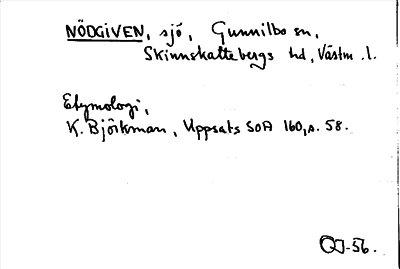 NÖDGIVEN, sjö, Gunnilbo sn,
Skinnskattebergs hd, Västm. l.
Etymologi,
K. Björkman, Uppsats SOÄ 160, s. 58.
OJ-56.